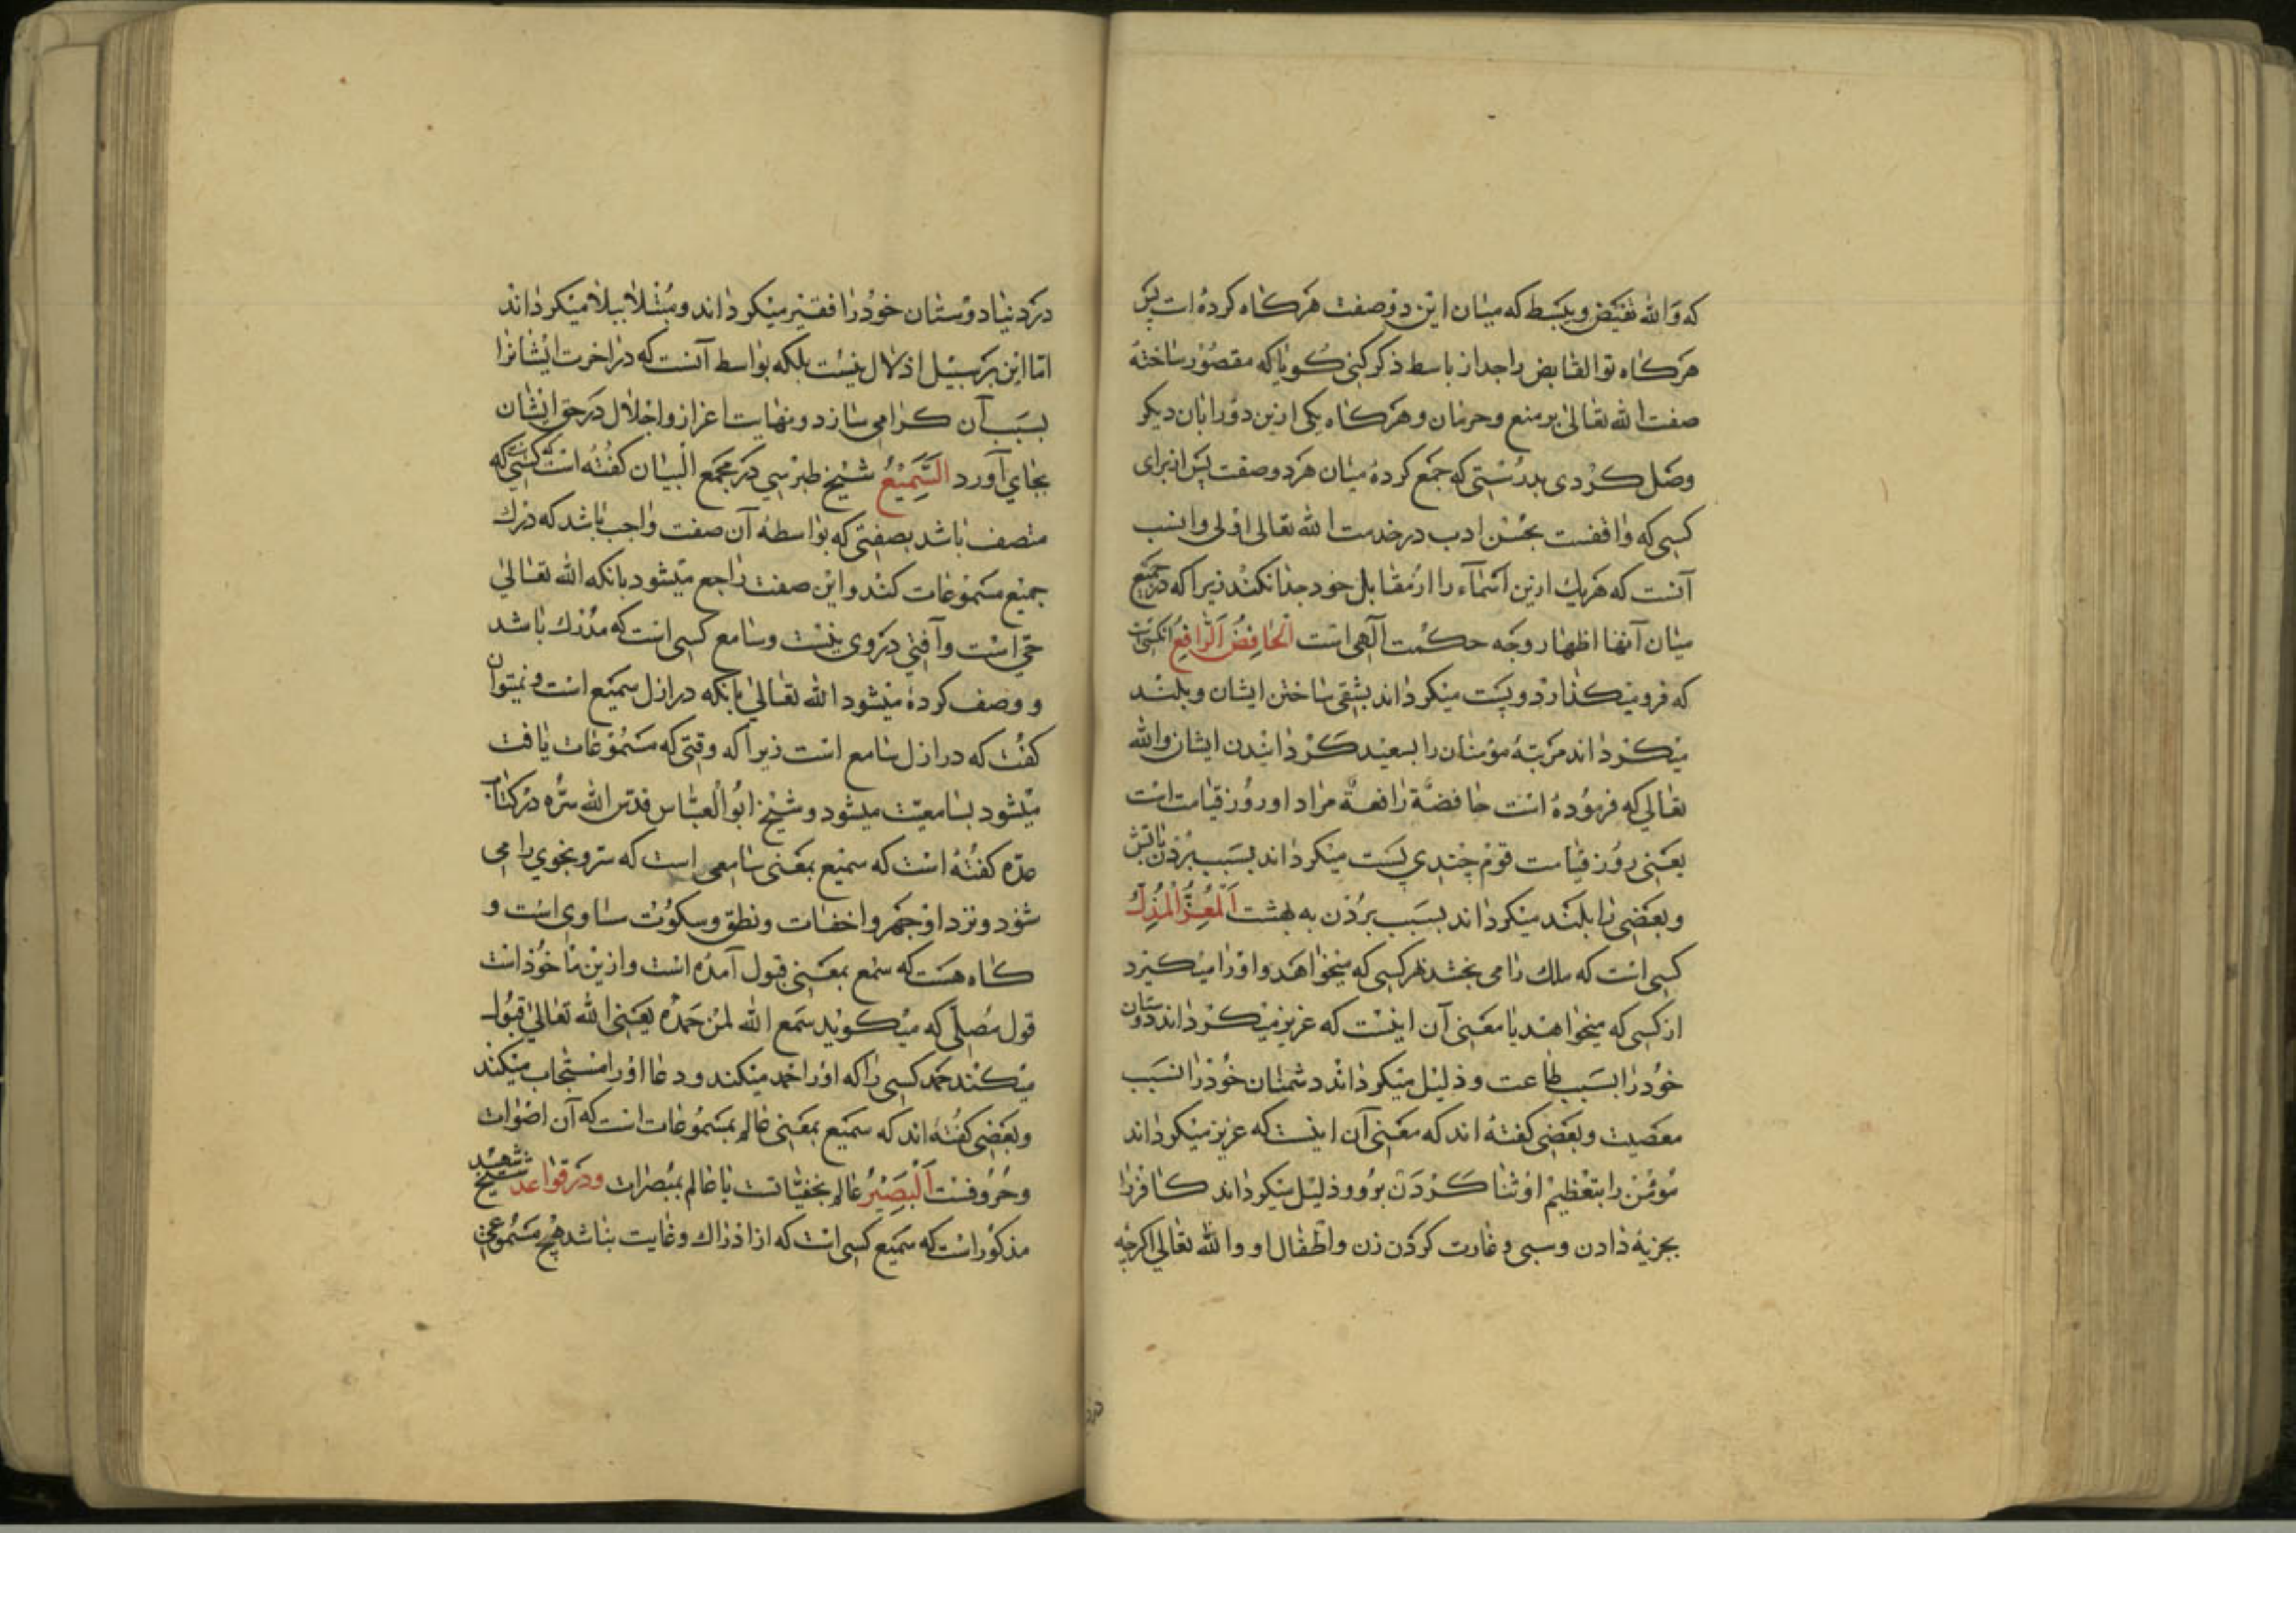 که والله یقبض ویبسط که میان این دو صفت هرکاه کرده است پس
هرکاه تو القابض را جدا از باسط ذکر کنی کویا که مقصور ساختهٔ
صفت الله تعالیٰ بر منع وحرمان وهرکاه یکی ازین دو را بان دیکر
وصل کردی بدرستی که جمع کردهٔ میان هر دو صفت پس از برای
کسی که واقفست بحسن ادب در خدمت الله تعالی اولی وانسب
آنست که هر یك ازین اسمآء را از مقابل خود جدا نکنند زیرا که در جمیع
میان آنها اظهار وجه حکمت آلهی است الخافِضُ الرّافِعُ آنکسی است
که فرومیکذارد و پست میکرداند بشقی ساختن ایشان و بلند
میکرداند مرتبهٔ مؤمنان را بسعید کردانیدن ایشان والله
تعالی که فرموده است خافضة رافعة مراد او روز قیامت است
یعنی روز قیامت قوم چندی پست میکرداند بسبب بردن باتش
وبعضی را بلند میکرداند بسبب بردن به بهشت اَلْمُعِزُّ الْمُذِلُّ
کسی است که ملك را می بخشد هر کسی که میخواهد و او را میکیرد
از کسی که میخواهد یا معنی آن اینست که عزیز میکرداند دوستان
خود را بسبب طاعت وذلیل میکرداند دشمنان خود را بسبب
معصیت وبعضی کفته اند که معنی آن اینست که عزیز میکرداند
مؤمن را بتعظیم او ثنا کردن برو وذلیل میکرداند کافر را
بجزیه دادن وسبی وغارت کردن زن واطفال او والله تعالی اکرچه
در د
در دنیا دوستان خود را فقیر میکرداند ومبتلا ببلا میکرداند
امّا این بر سبیل اذلال نیست بلکه بواسط آنست که در آخرت ایشانرا
بسبب آن کرامی سازد ونهایت اعزاز واجلال در حق ایشان
بجای آورد السَّمِیْعُ شیخ طبرسی در مجمع البیان کفته است که کسی است که
متصف باشد بصفتی که بواسطهٔ آن صفت واجب باشد که درك
جمیع مسموعات کند واین صفت راجع میشود بانکه الله تعالیٰ
حیّ است وآفتی در وی نیست وسامع کسی است که مدرك باشد
و وصف کرده میشود الله تعالیٰ بانکه در ازل سمیع است ونمیتوان
کفت که در ازل سامع است زیرا که وقتی که مسموعات یافت
میشود بسامعیّت میشود وشیخ ابو العبّاس قدس الله سرّه در کتاب
عدّه کفته است که سمیع بمعنی سامعی است که سر ونجوی را می
شنود ونزد او جهر واخفات ونطق وسکوت ساوی است و
کاه هست که سمع بمعنی قبول آمده است وازین ماخوذ است
قول مصلّی که میکوید سمع الله لمن حمده یعنی الله تعالیٰ قبول
میکند حمد کسی را که او را حمد میکند ودعا او را مستجاب میکند
وبعضی کفته اند که سمیع بمعنی عالم بمسموعات است که آن اصوات
وحروفست اَلْبَصِیْرُ عالم بخفیّاتست یا عالم بمبصرات ودر قواعد شیخ شهید
مذکور است که سمیع کسی است که از ادراك وغایت نباشد هیچ مسموعی